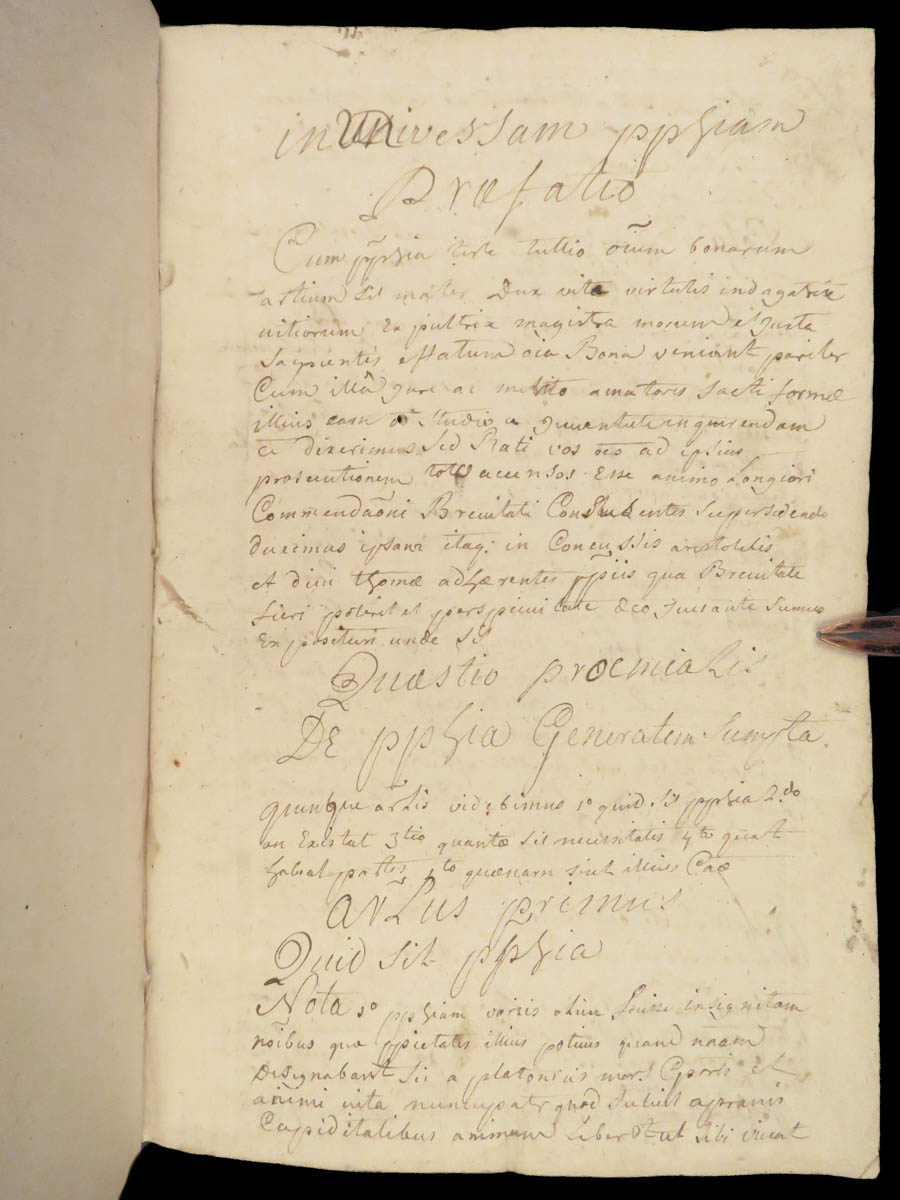 in Universam ppħiam
Præfatio
Cum ppħia teste tullio oĩum bonarum
artium sit mater Dux vitæ virtutis indagatrix
vitiorum Expultrix magistra morum et Juxta
Sapientis effatum oĩa Bona veniant pariter
Cum illâ Jure ac merito amatores facti formæ
illius eam studio a Juventute inquirendam
dixerimus Sed Rati vos oẽs ad ipsius
prosecutionem totos accensos Esse animo Longiori
Commendaõni Brevitati Consulentes Supersedendo
duximus ipsam itaq; in Concussis aristotelis
et divi thomæ adhærentes ppiis qua Brevitate
fieri poterit et perspicuitate deo Juvante Sumus
Exposituri unde sit
Quæstio proemialis
De ppħia Generatem Sumpta.
quinque ar̃lis videbimus 1º quid sit ppħia 2.do
an Existat 3tio quantæ sit necessitatis 4to quot
habeat partes 5to quænam sint illius Cãe
ar̃Lus primus
Quid sit ppħia
Nota 1º ppħiam variis olim fuisse insignitam
nõibus quæ ppietates illius potius quam nãam
Designabant sic a platonicis mors Cporis et
animi vita nuncupatr quod scilicet a pravis
Cupiditatibus animum Liberet ut sibi vivat